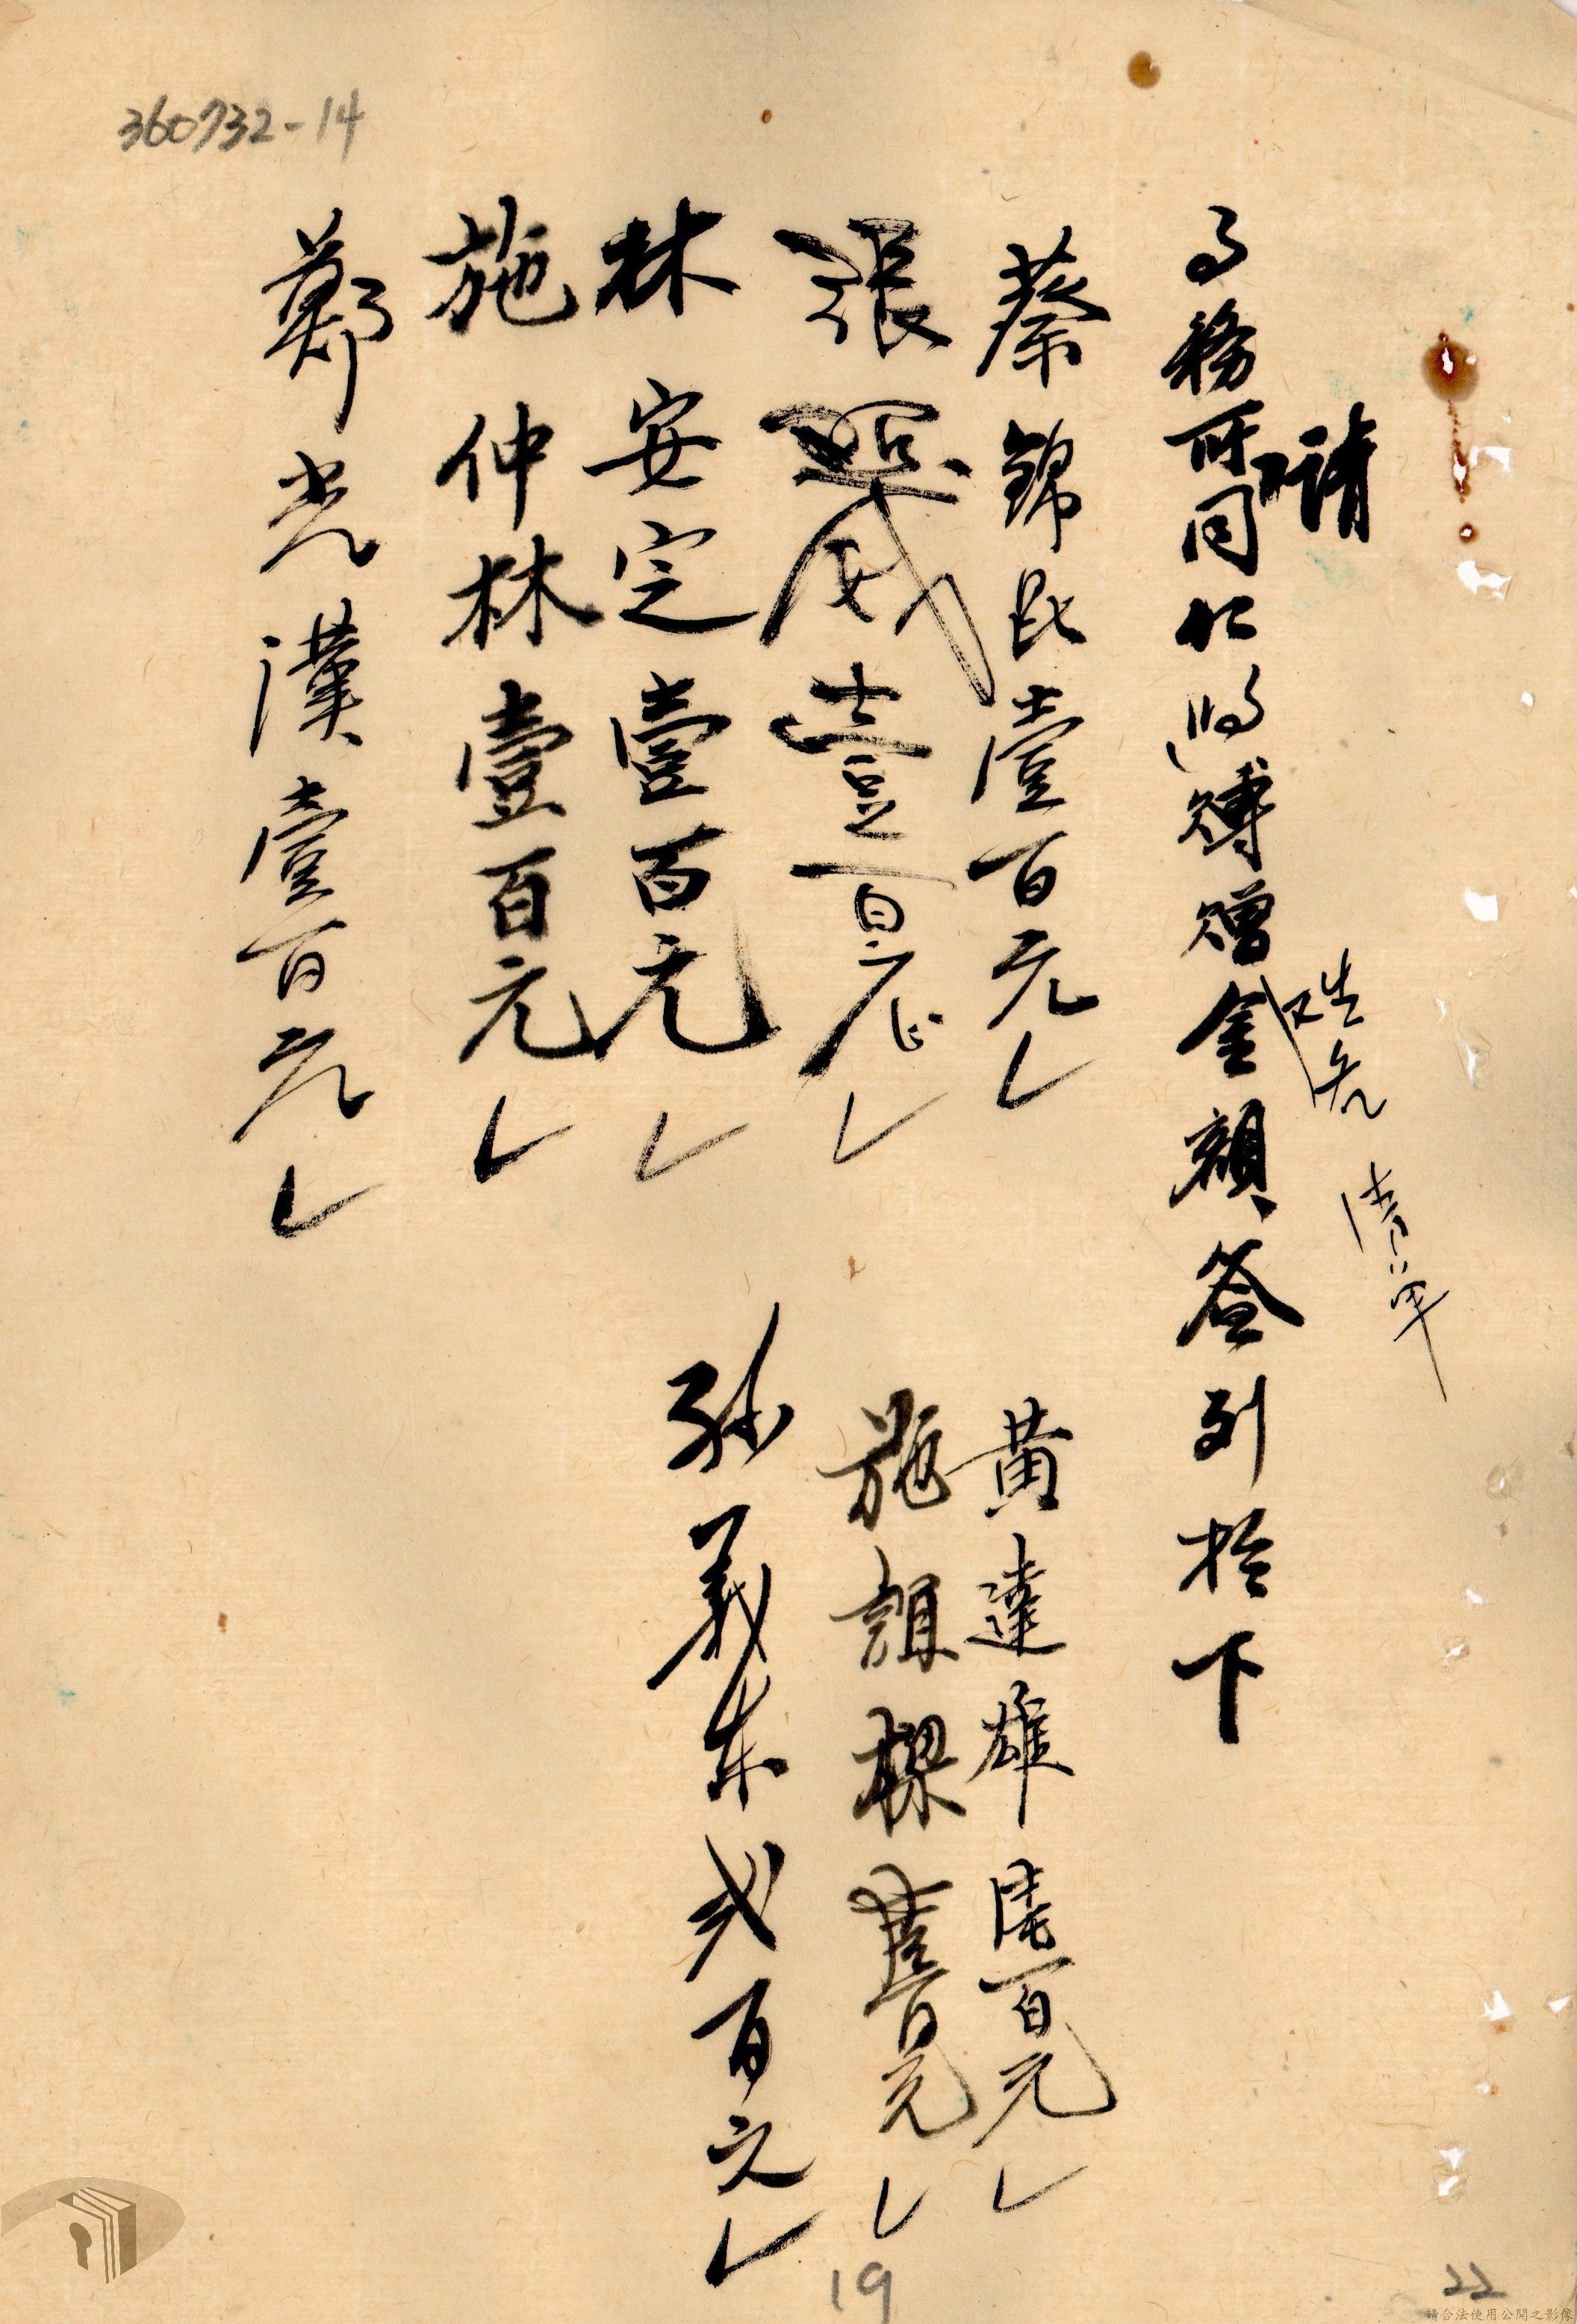 360732-14
請
事務所同仁將賻贈金額簽列於下
姓名
清單
蔡錦昆壹百元
張照
壹百元正
林安定壹百元
施仲林壹百元
鄭光漢壹百元
黃達雄陸百元
施韻樑壹百元
孫義東貳百元
19
22
請合法使用公開之影像